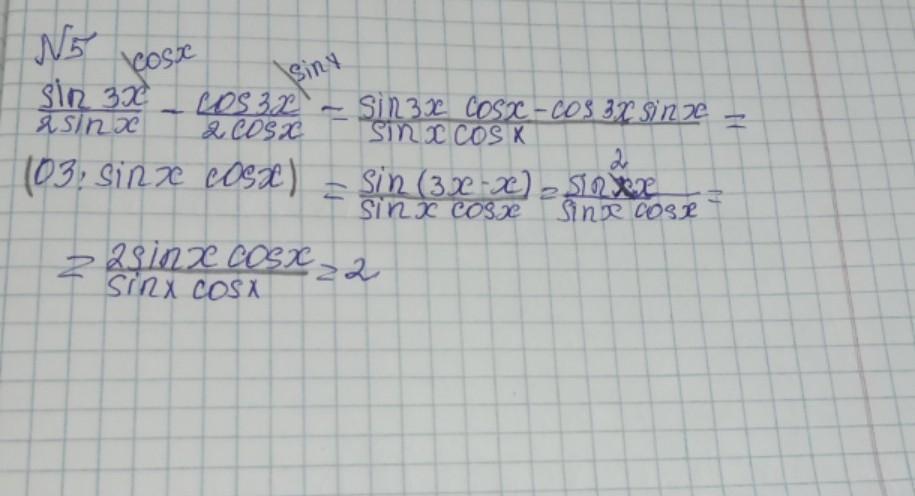 №5
sin 3x \cosx / 2 sin x − cos 3x \sinx / 2 cosx = sin 3x cosx − cos 3x sin x / sin x cos x =
(ОЗ: sin x cosx) = sin (3x - x) / sin x cosx = sin 2x / sin x cosx =
= 2 sin x cosx / sin x cosx = 2